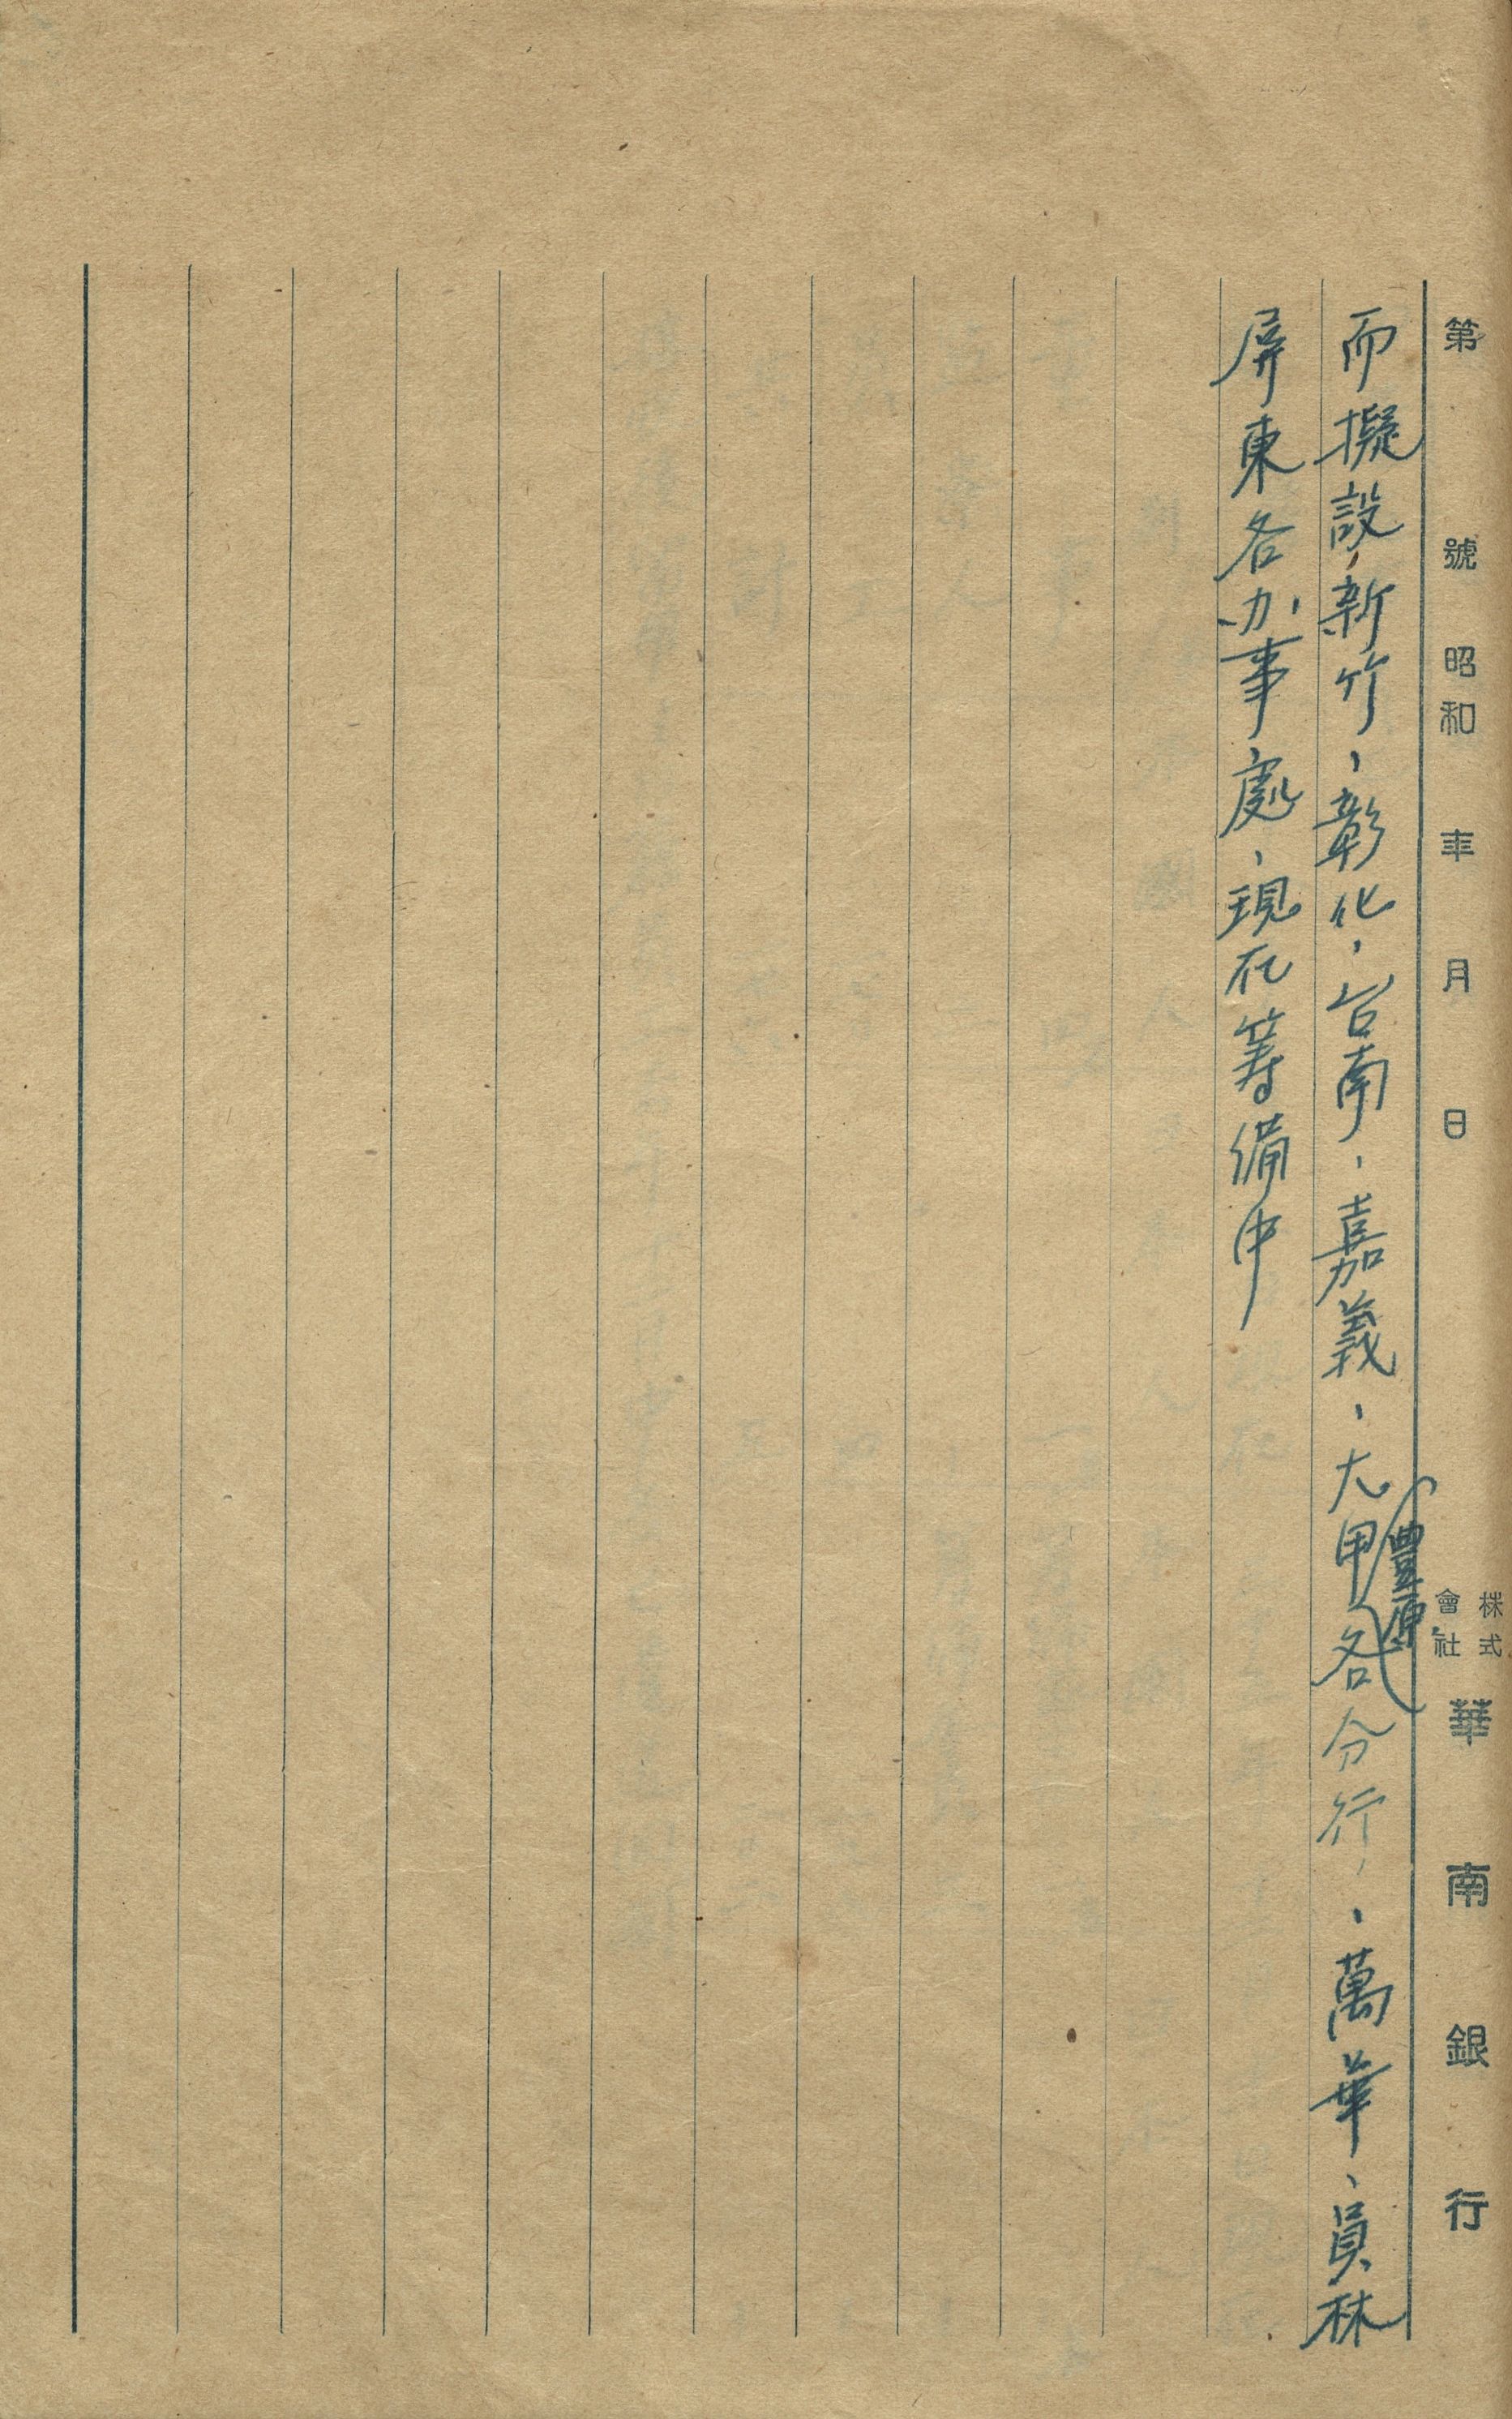 第 號 昭和 年 月 日 株式會社 華南銀行
而擬設,新竹、彰化、台南、嘉義、大甲豐原,各分行,、萬華、員林
屏東各办事處、現在籌備中